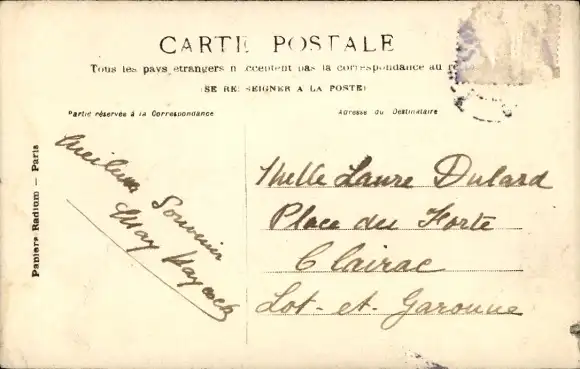 CARTE POSTALE
Tous les pays etrangers n'acceptent pas la correspondance au
(SE RENSEIGNER A LA POSTE)
Partie réservée à la Correspondance
Adresse du Destinataire
Paniers Radium — Paris
Meilleur Souvenir
May Haycock
Melle Laure Dulard
Place du Forte
Clairac
Lot-et-Garonne